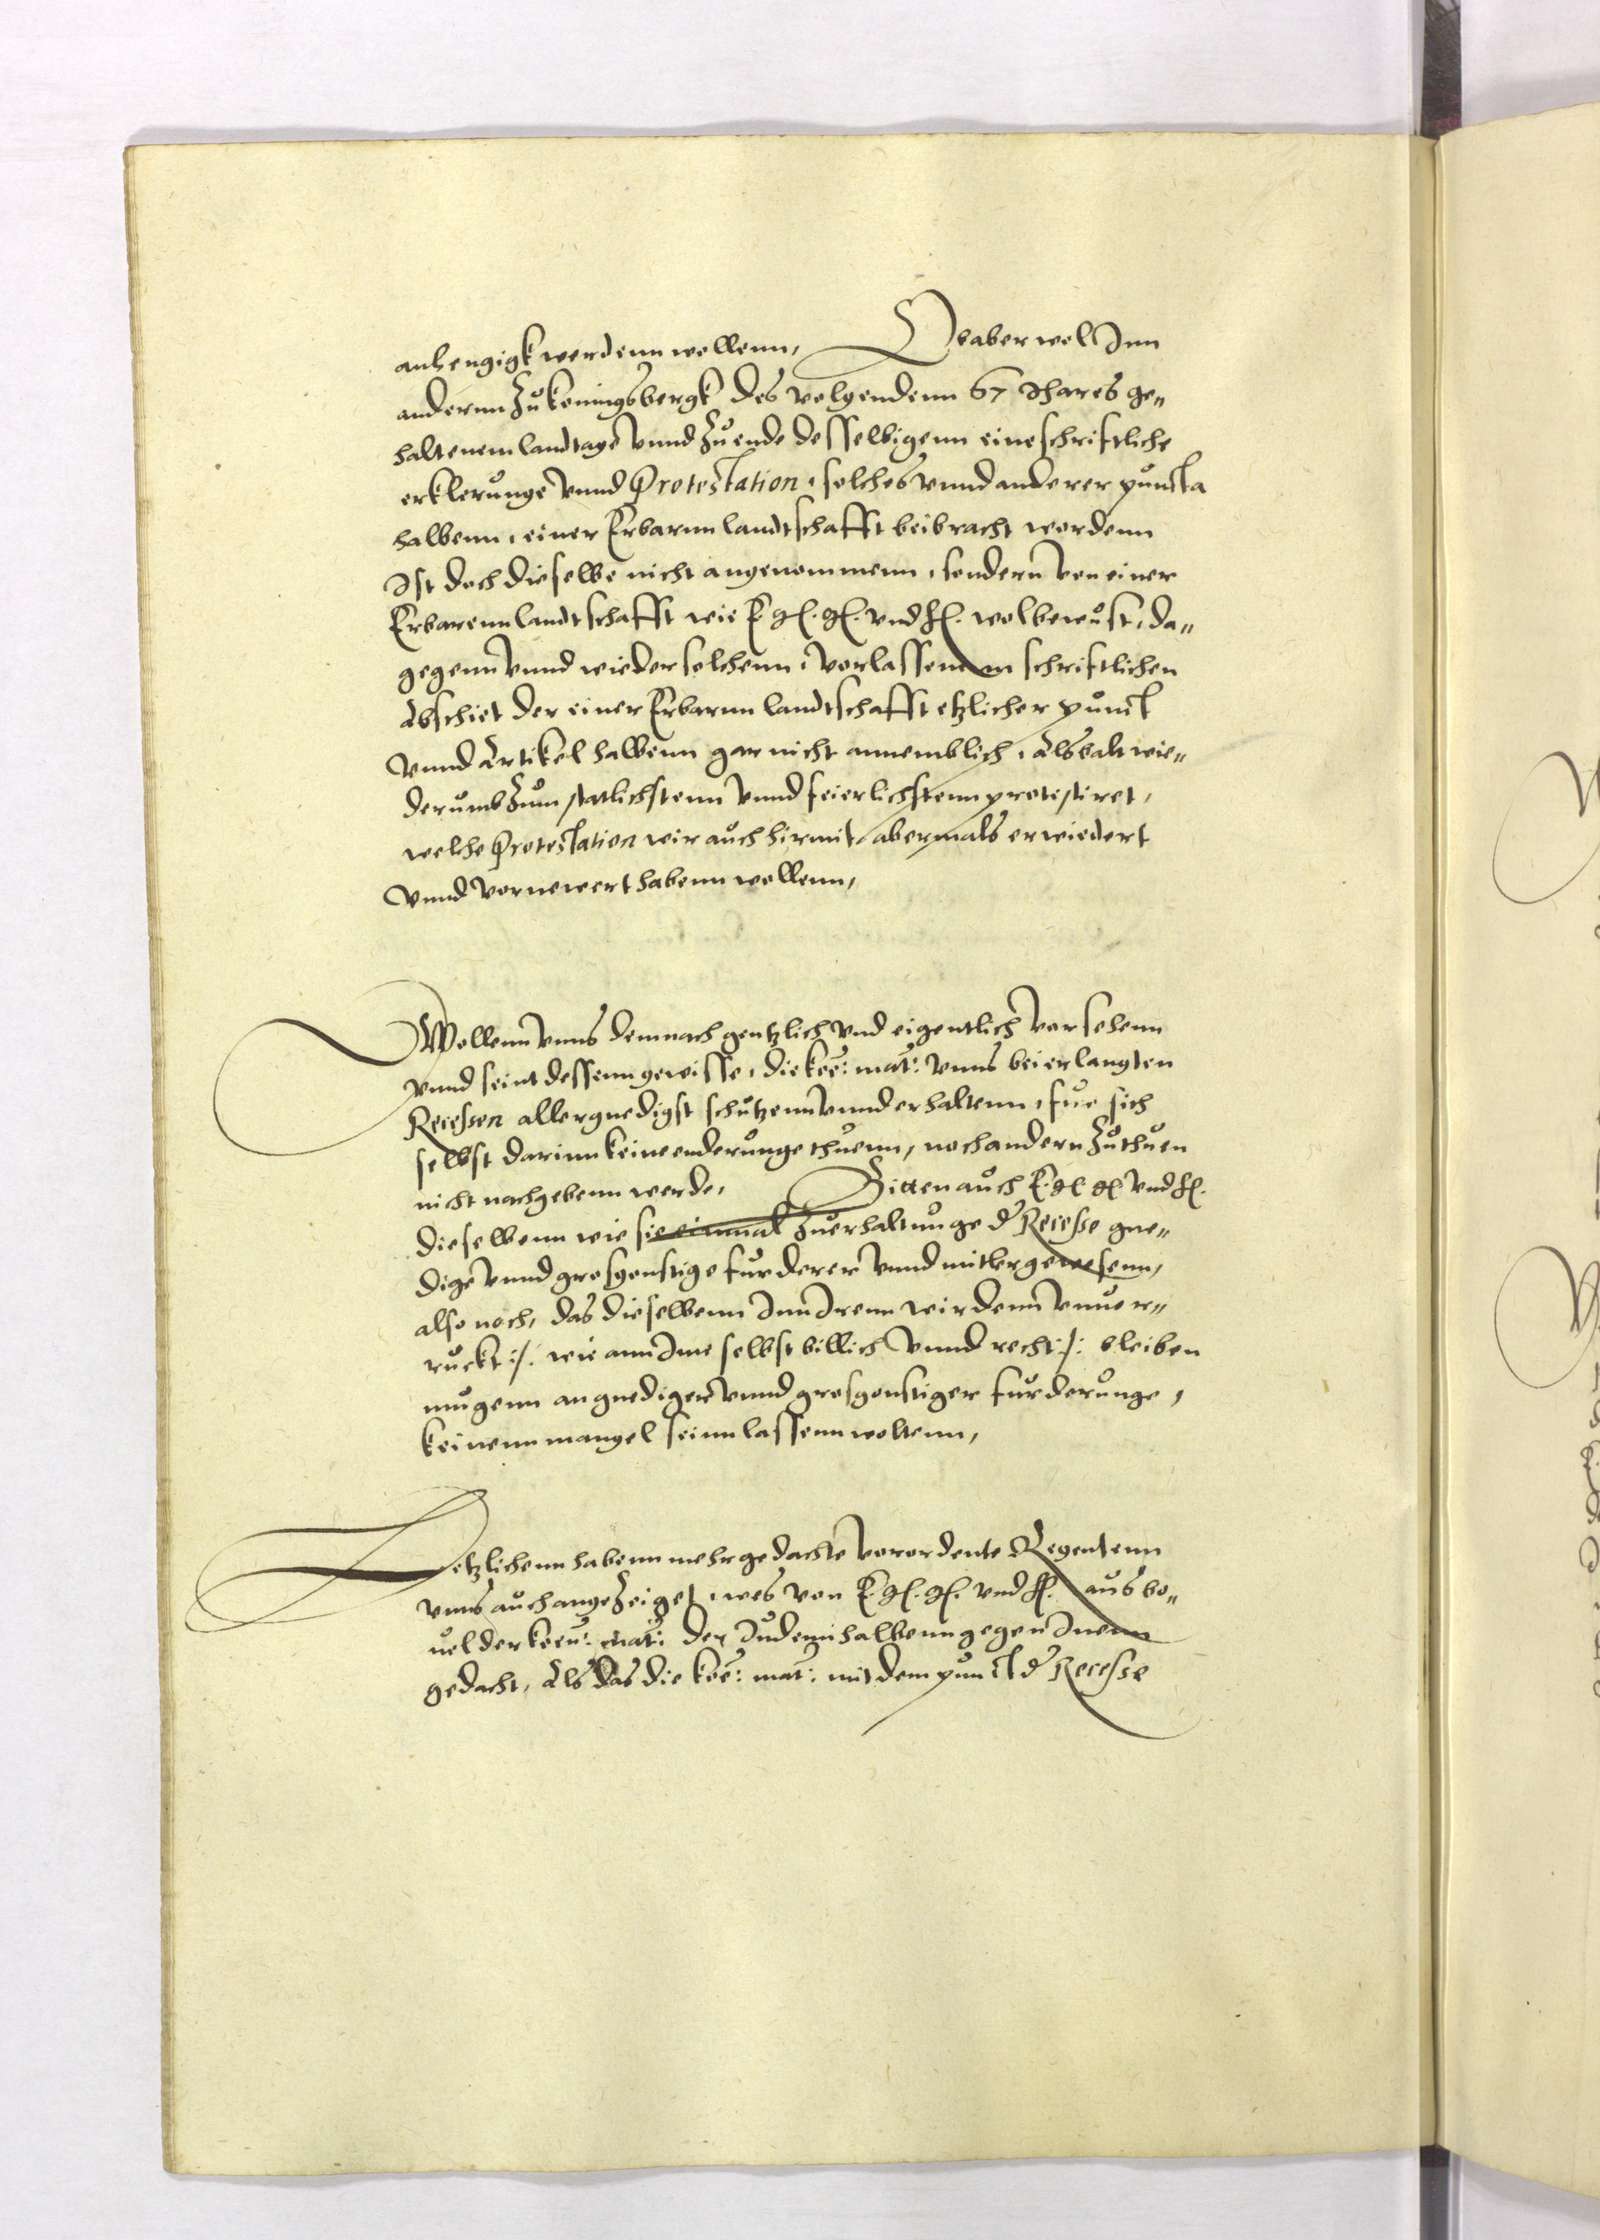 anhengigk werdenn wollenn, Ob aber wol Inn
andernn zu Koningsbergk des volgendenn 67 Ihares ge„
haltenem landtage vnnd zu ende desselbigenn eine schriftliche
erklerunge vnnd Protestation, solches vnnd anderer puncta
halbenn, einer Erbarnn landtschafft beibracht wordenn
Ist doch dieselbe nicht angenommenn, sondern von einer
Erbarenn landtschafft wie E. gl. gl. vnd hl. wolbewust, da„
gegenn vnnd wieder solchenn, vorlassenenn schriftlichen
Abschiet der einer Erbarnn landtschafft etzlicher punct
vnnd Artikel halbenn gar nicht annemblich, Alsbalt wie„
derumb zum statlichstenn vnnd feierlichstenn protestiret,
welche Protestation wir auch hirmit abermals erwiedert
vnnd vornewert habenn wollenn,
Wollenn vnns demnach gentzlich vnd eigentlich vorsehenn
vnnd seint dessenn gewisse, die koe: mat: vnns bei erlangten
Recessen allergnedigst schutzenn vnnd erhaltenn, fur sich
selbst darinn keine enderunge thuenn, noch andern zu thuen
nicht nachgebenn werde, Bitten auch E. gl. gl. vnd hl.
dieselbenn wie sie einmal zu erhaltunge d' Recesse gne„
dige vnnd grosgonstige furderer vnnd mitler gewesenn,
also noch, das dieselbenn Inn Irenn wirdenn vnuer„
ruckt :/: wie ann Ime selbst billich vnnd recht :/: bleiben
mugenn an gnediger vnnd grosgonstiger furderunge,
keinenn mangel seinn lassenn woltenn,
Letzlichenn habenn mehrgedachte vorordente Regentenn
vnns auch angezeiget, wes von E. gl. gl. vnd hl. aus be„
uel der koen: mat: der Judenn halbenn gegen Inenn
gedacht, Als das die koe: mat: mit dem punct d' Recesse